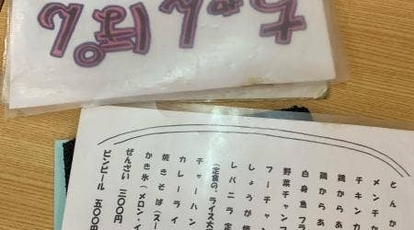 ちゃんぽん
とんか
メンチか
チキンカ
鶏からあ
鶏からあ
白身魚フラ
野菜チャンプ
フーチャン
しょうが焼
レバニラ定
(定食の、ライス大
チャーハン
カレーライ
焼きそば(スー
かき氷(メロン・イ
ぜんざい 三〇〇円
ビンビール 五〇〇円